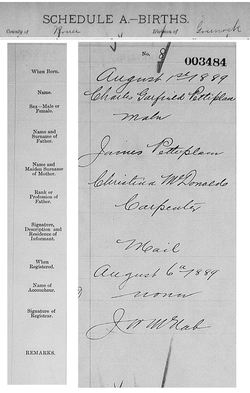 SCHEDULE A.—BIRTHS.
County of Bruce Division of Greenock
No. 8
003484
When Born. August 1st 1889
Name. Charles Garfield Pettiplace
Sex—Male or Female. Male
Name and Surname of Father. James Pettiplace
Name and Maiden Surname of Mother. Christina McDonald
Rank or Profession of Father. Carpenter
Signature, Description and Residence of Informant. Mail
When Registered. August 6th 1889
Name of Accoucheur. none
Signature of Registrar. J W McNab
REMARKS.